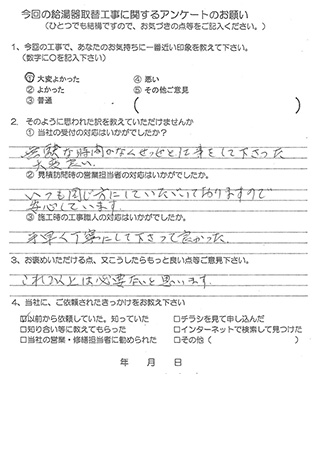 今回の給湯器取替工事に関するアンケートのお願い
(ひとつでも結構ですので、お気づきの点等をご記入ください。)
1、今回の工事で、あなたのお気持ちに一番近い印象を教えて下さい。
(数字に○を記入下さい)
① 大変よかった ④ 悪い
② よかった ⑤ その他ご意見
③ 普通 ( )
2. そのように思われた訳を教えていただけませんか
① 当社の受付の対応はいかがでしたか?
無駄な時間がなくせっせと仕事をして下さった
大変良い
② 見積訪問時の営業担当者の対応はいかがでしたか。
いつも同じ方にしていただいておりますので
安心しています.
③ 施工時の工事職人の対応はいかがでしたか?
手早く丁寧にして下さって良かった.
3、お褒めいただける点、又こうしたらもっと良い点等ご意見下さい。
これ以上は必要ないと思います.
4、当社に、ご依頼されたきっかけをお教え下さい
☑以前から依頼していた。知っていた □チラシを見て申し込んだ
□知り合い等に教えてもらった □インターネットで検索して見つけた
□当社の営業・修繕担当者に勧められた □その他( )
年 月 日